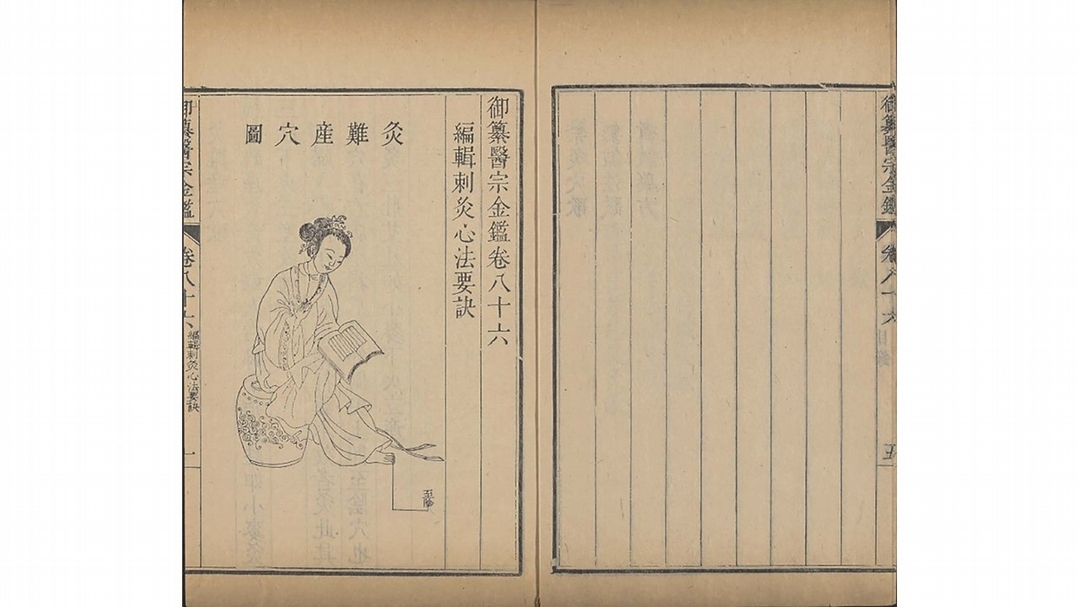 御纂醫宗金鑑
卷八十六
五
御纂醫宗金鑑卷八十六
編輯刺灸心法要訣
灸難産穴圖
至陰
御纂醫宗金鑑
卷八十六
編輯刺灸心法要訣
一